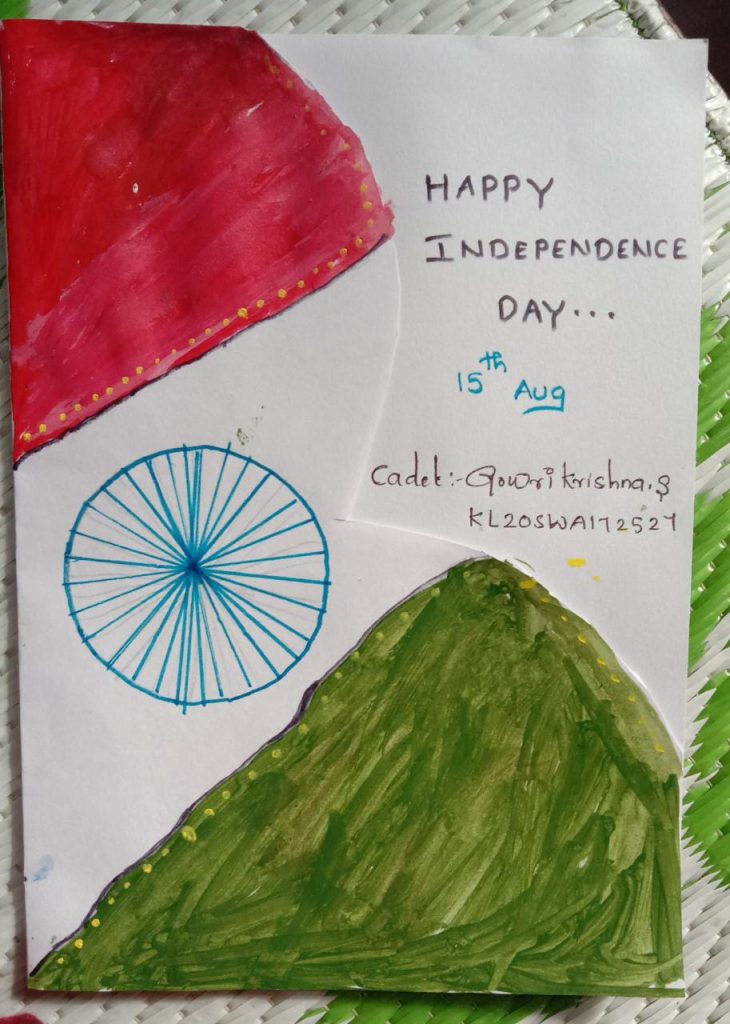 HAPPY
INDEPENDENCE
DAY...
15th Aug
Cadet:- Gowri Krishna.S
KL20SWA172527